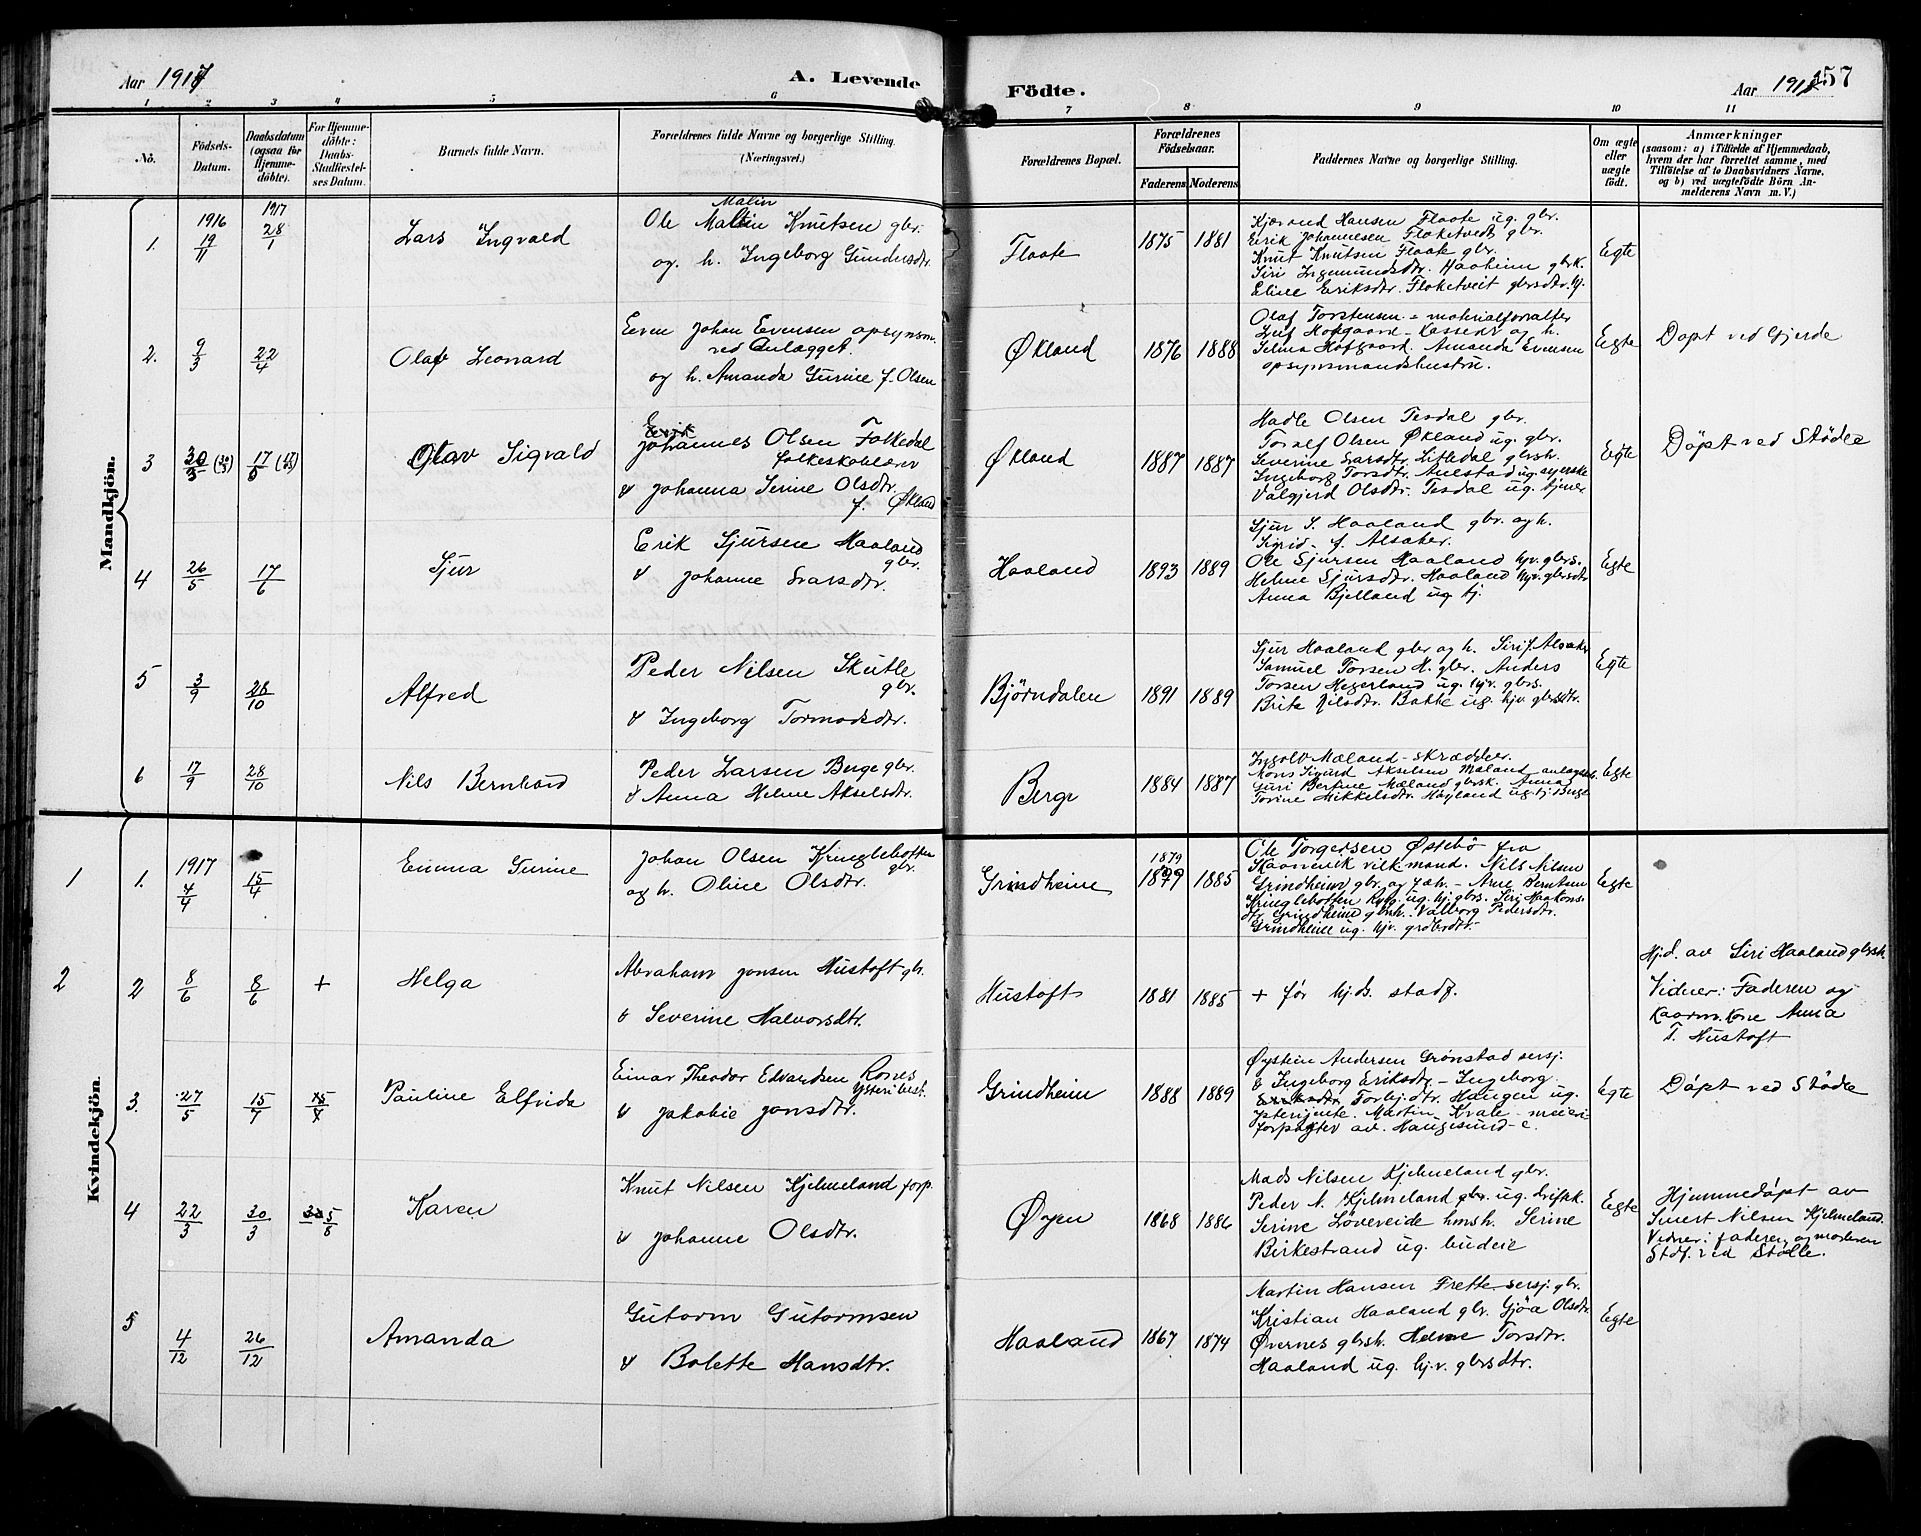 Aar 1917
A. Levende
Födte.
Aar 191
157
1 2 3 4 5 6 7 8 9 10 11
No.
Födsels-
Datum.
Daabsdatum
(ogsaa for
Hjemme-
döbte).
For Hjemme-
döbte:
Daabs-
Stadfæstel-
ses Datum.
Barnets fulde Navn.
Forældrenes fulde Navne og borgerlige Stilling.
(Næringsvei.)
Forældrenes Bopæl.
Forældrenes
Födselsaar.
Faderens
Moderens
Faddernes Navne og borgerlige Stilling.
Om ægte
eller
uægte
födt.
Anmærkninger
(saasom: a) i Tilfælde af Hjemmedaab,
hvem der har forrettet samme, med
Tilföielse af to Daabsvidners Navne,
og b) ved uægtefödte Börn An-
melderens Navn m. V.)
Mandkjön.
1.
1916
19/11
1917
28/1
Lars Ingvald
Malin
Ole Knutsen gbr.
og. h. Ingeborg Gundersdtr.
Flaate
1875
1881
Kjærand Hansen Flaate ug. gbr.
Eirik Johannesen Floketvedt gbr.
Knut Knutsen Flaate gbr.
Siri Ingemundsdtr. Haaheim gbrk.
Eline Eriksdtr. Floketveit gbrsdtr. hj.
Egte
2.
9/3
22/4
Olav Leonard
Even Johan Evensen opsynsm.
ved anlægget.
og h. Amanda Gurine f. Olsen
Økland
1876
1888
Olaf Torstensen - materialforvalter
Leif Hofgaard - Kasserer og h.
Selma Hofgaard. Amanda Evensen
opsynsmandshustru.
Egte
Døpt ved Gjerde
3
30/3
17/5
Olav Sigvald
Johannes Olsen Folkedal
folkeskolelærer
& Johanna Serine Olsdtr.
f. Økland
Økland
1887
1887
Hadle Olsen Tesdal gbr.
Toralf Olsen Økland ug. gbr.
Severine Larsdtr. Litledal gbrsh.
Ingeborg Torsdtr. Aulestad ug. syerske
Valgjerd Olsdtr. Tesdal ug. tjener
Egte
Døpt ved Stødle
4
26/5
17/6
Sjur
Erik Sjursen Haaland
gbr.
& Johanne Larsdtr.
Haaland
1893
1889
Sjur S. Haaland gbr. og h.
Sigrid - f. Alsaker.
Ole Sjursen Haaland hjv. gbrs.
Helene Sjursdtr. Haaland hjv. gbrsdtr
Anna Bjelland ug tj.
Egte
5
3/9
28/10
Alfred
Peder Nilsen Skutle
gbr.
& Ingeborg Tormodsdtr.
Bjørndalen
1891
1889
Sjur Haaland gbr og h. Siri f. Alsaker
Samuel Torsen H. gbr. Anders
Torsen Hegerland ug. hjv. gbrs.
Brita Nilsdtr. Bakke ug. hjv. gbrsdtr.
Egte
6
17/9
28/10
Nils Bernhard
Peder Larsen Berge gbr.
& Anna Helene Akselsdtr.
Berge
1884
1887
Ingolv Mæland - skrædder.
Mons Sigurd Akselsen Mæland anlægsarb.
Guri Bertine Mæland gbrsk. Anna
Torine Mikkelsdtr. Høyland ug. tj. Berge
Egte
Kvindekjön.
1
1.
1917
4/4
15/4
Emma Gurine
Johan Olsen Kringlebotten
gbr.
og h. Oline Olsdtr.
Grindheim
1879
1879
1885
Ole Torgersen Østebø fra
Skaanevik virkmand. Nils Nilsen
Grindheim gbr. og
Grindheim ug. hjv.
Egte
2
2
8/6
8/6
+
Helga
Abraham Jonsen Hustoft gbr.
& Severine Halvorsdtr.
Hustoft
1881
1885
+ før hj.ds. stadf.
Hj.d. av Siri Haaland gbrsk
Vidner: Faderen og
Kaarm. Kone Anna
T. Hustoft
3.
27/5
15/7
15/7
Pauline Elfrida
Einar Theodor Edvardsen Rones
ysteribest.
& Jakobie Jonsdtr.
Grindheim
1888
1889
Øystein Andersen Grønstad sersj.
& Ingeborg Eriksdtr. - Ingeborg
Torbj.dtr. Haugen ug.
Ysterijente. Martin Kvale - meieri-
forpagter av. Haugesund -
Egte
Døpt ved Stødle
4
22/3
30/3
5/8
Karen
Knut Nilsen Kjelmeland forp.
& Johanne Olsdtr.
Øyen
1868
1886
Mads Nilsen Kjelmeland gbr.
Peder N. Kjelmeland gbr. ug. driftsk.
Serine Løvereide hmsh. Serine
Birkestrand ug. budeie
Egte
Hjemmedøpt av
Sivert Nilsen Kjelmeland.
Vidner: faderen og moderen
Stdf. ved Stødle.
5
4/12
26/12
Amanda
Gutorm Gutormsen
& Bolette Hansdtr.
Haaland
1867
1874
Martin Hansen Frette sersj. gbr.
Kristian Haaland gbr. Gjøa Olsdtr.
Øvernes gbrsk. Helene Torsdtr.
Haaland ug. hj.v. gbrsdtr.
Egte